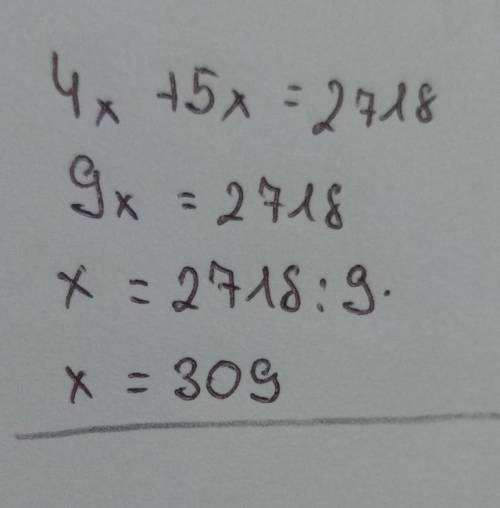 4x + 5x = 2718
9x = 2718
x = 2718 : 9.
x = 309